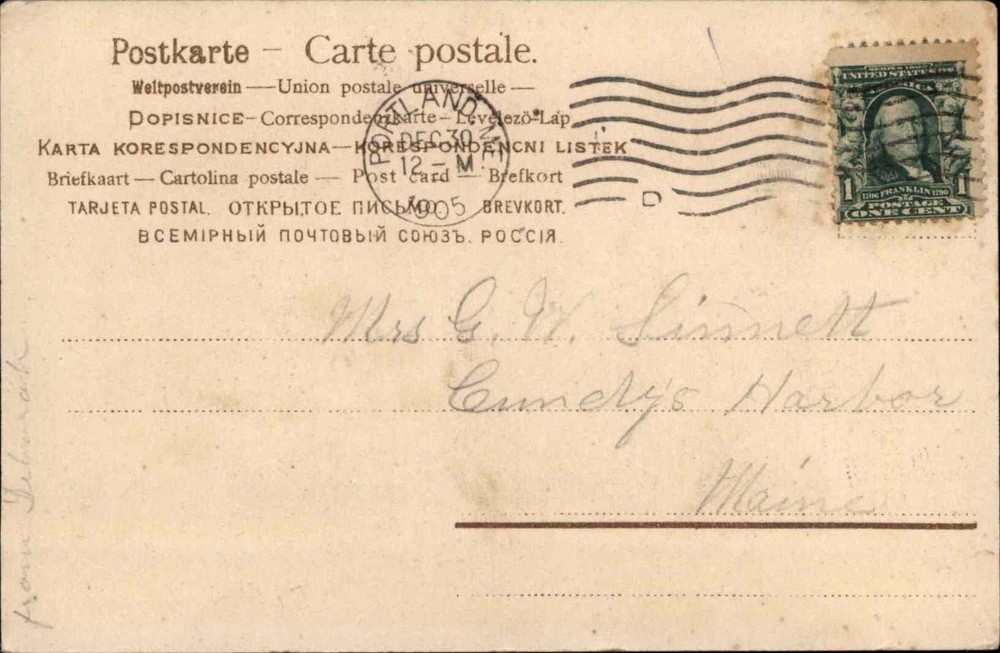 Postkarte – Carte postale.
Weltpostverein — Union postale universelle —
DOPISNICE – Correspondenzkarte – Levelező-Lap
KARTA KORESPONDENCYJNA – KORESPONDENČNI LISTEK
Briefkaart — Cartolina postale — Post card — Brefkort
TARJETA POSTAL. ОТКРЫТОЕ ПИСЬМО. BREVKORT.
ВСЕМІРНЫЙ ПОЧТОВЫЙ СОЮЗЪ. РОССІЯ.
PORTLAND, ME.
DEC 30
12 – M
1905
D
SERIES 1902
UNITED STATES OF
1706 FRANKLIN 1790
1 POSTAGE 1
ONE CENT
Mrs G. W. Sinnett
Cundy's Harbor
Maine
from